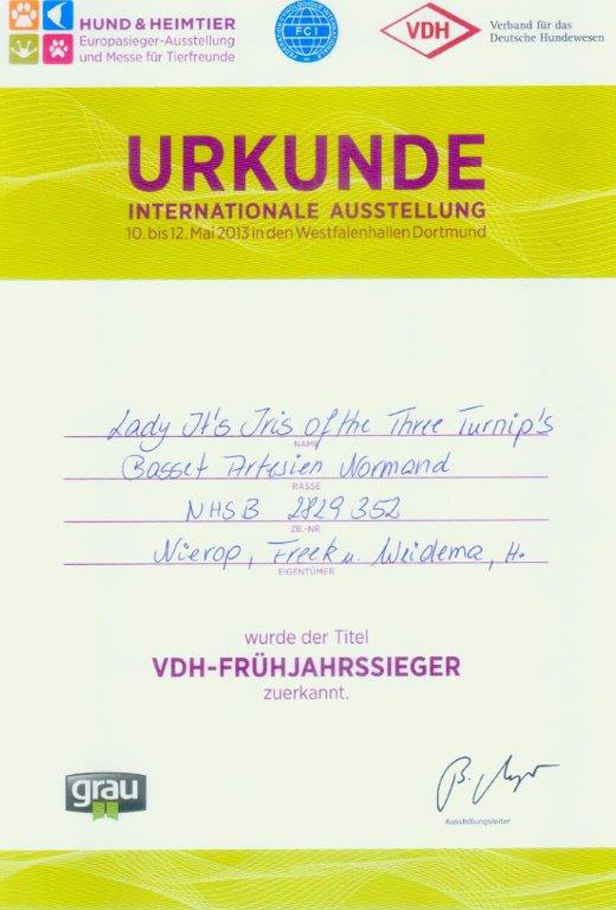 HUND & HEIMTIER
Europasieger-Ausstellung
und Messe für Tierfreunde
FEDERATION CYNOLOGIQUE INTERNATIONALE
FCI
VDH
Verband für das
Deutsche Hundewesen
URKUNDE
INTERNATIONALE AUSSTELLUNG
10. bis 12. Mai 2013 in den Westfalenhallen Dortmund
Lady It's Iris of the Three Turnip's
NAME
Basset Artesien Normand
RASSE
NHSB 2829352
ZB.-NR.
Nierop, Freek u. Weidema, H.
EIGENTÜMER
wurde der Titel
VDH-FRÜHJAHRSSIEGER
zuerkannt.
grau
Ausstellungsleiter